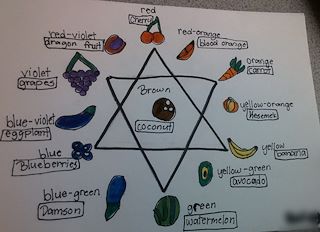 red
Cherry
red-orange
blood orange
orange
Carrot
yellow-orange
yellow
banana
yellow-green
avocado
green
watermelon
blue-green
Damson
blue
Blueberries
blue-violet
eggplant
violet
grapes
red-violet
dragon fruit
Brown
coconut